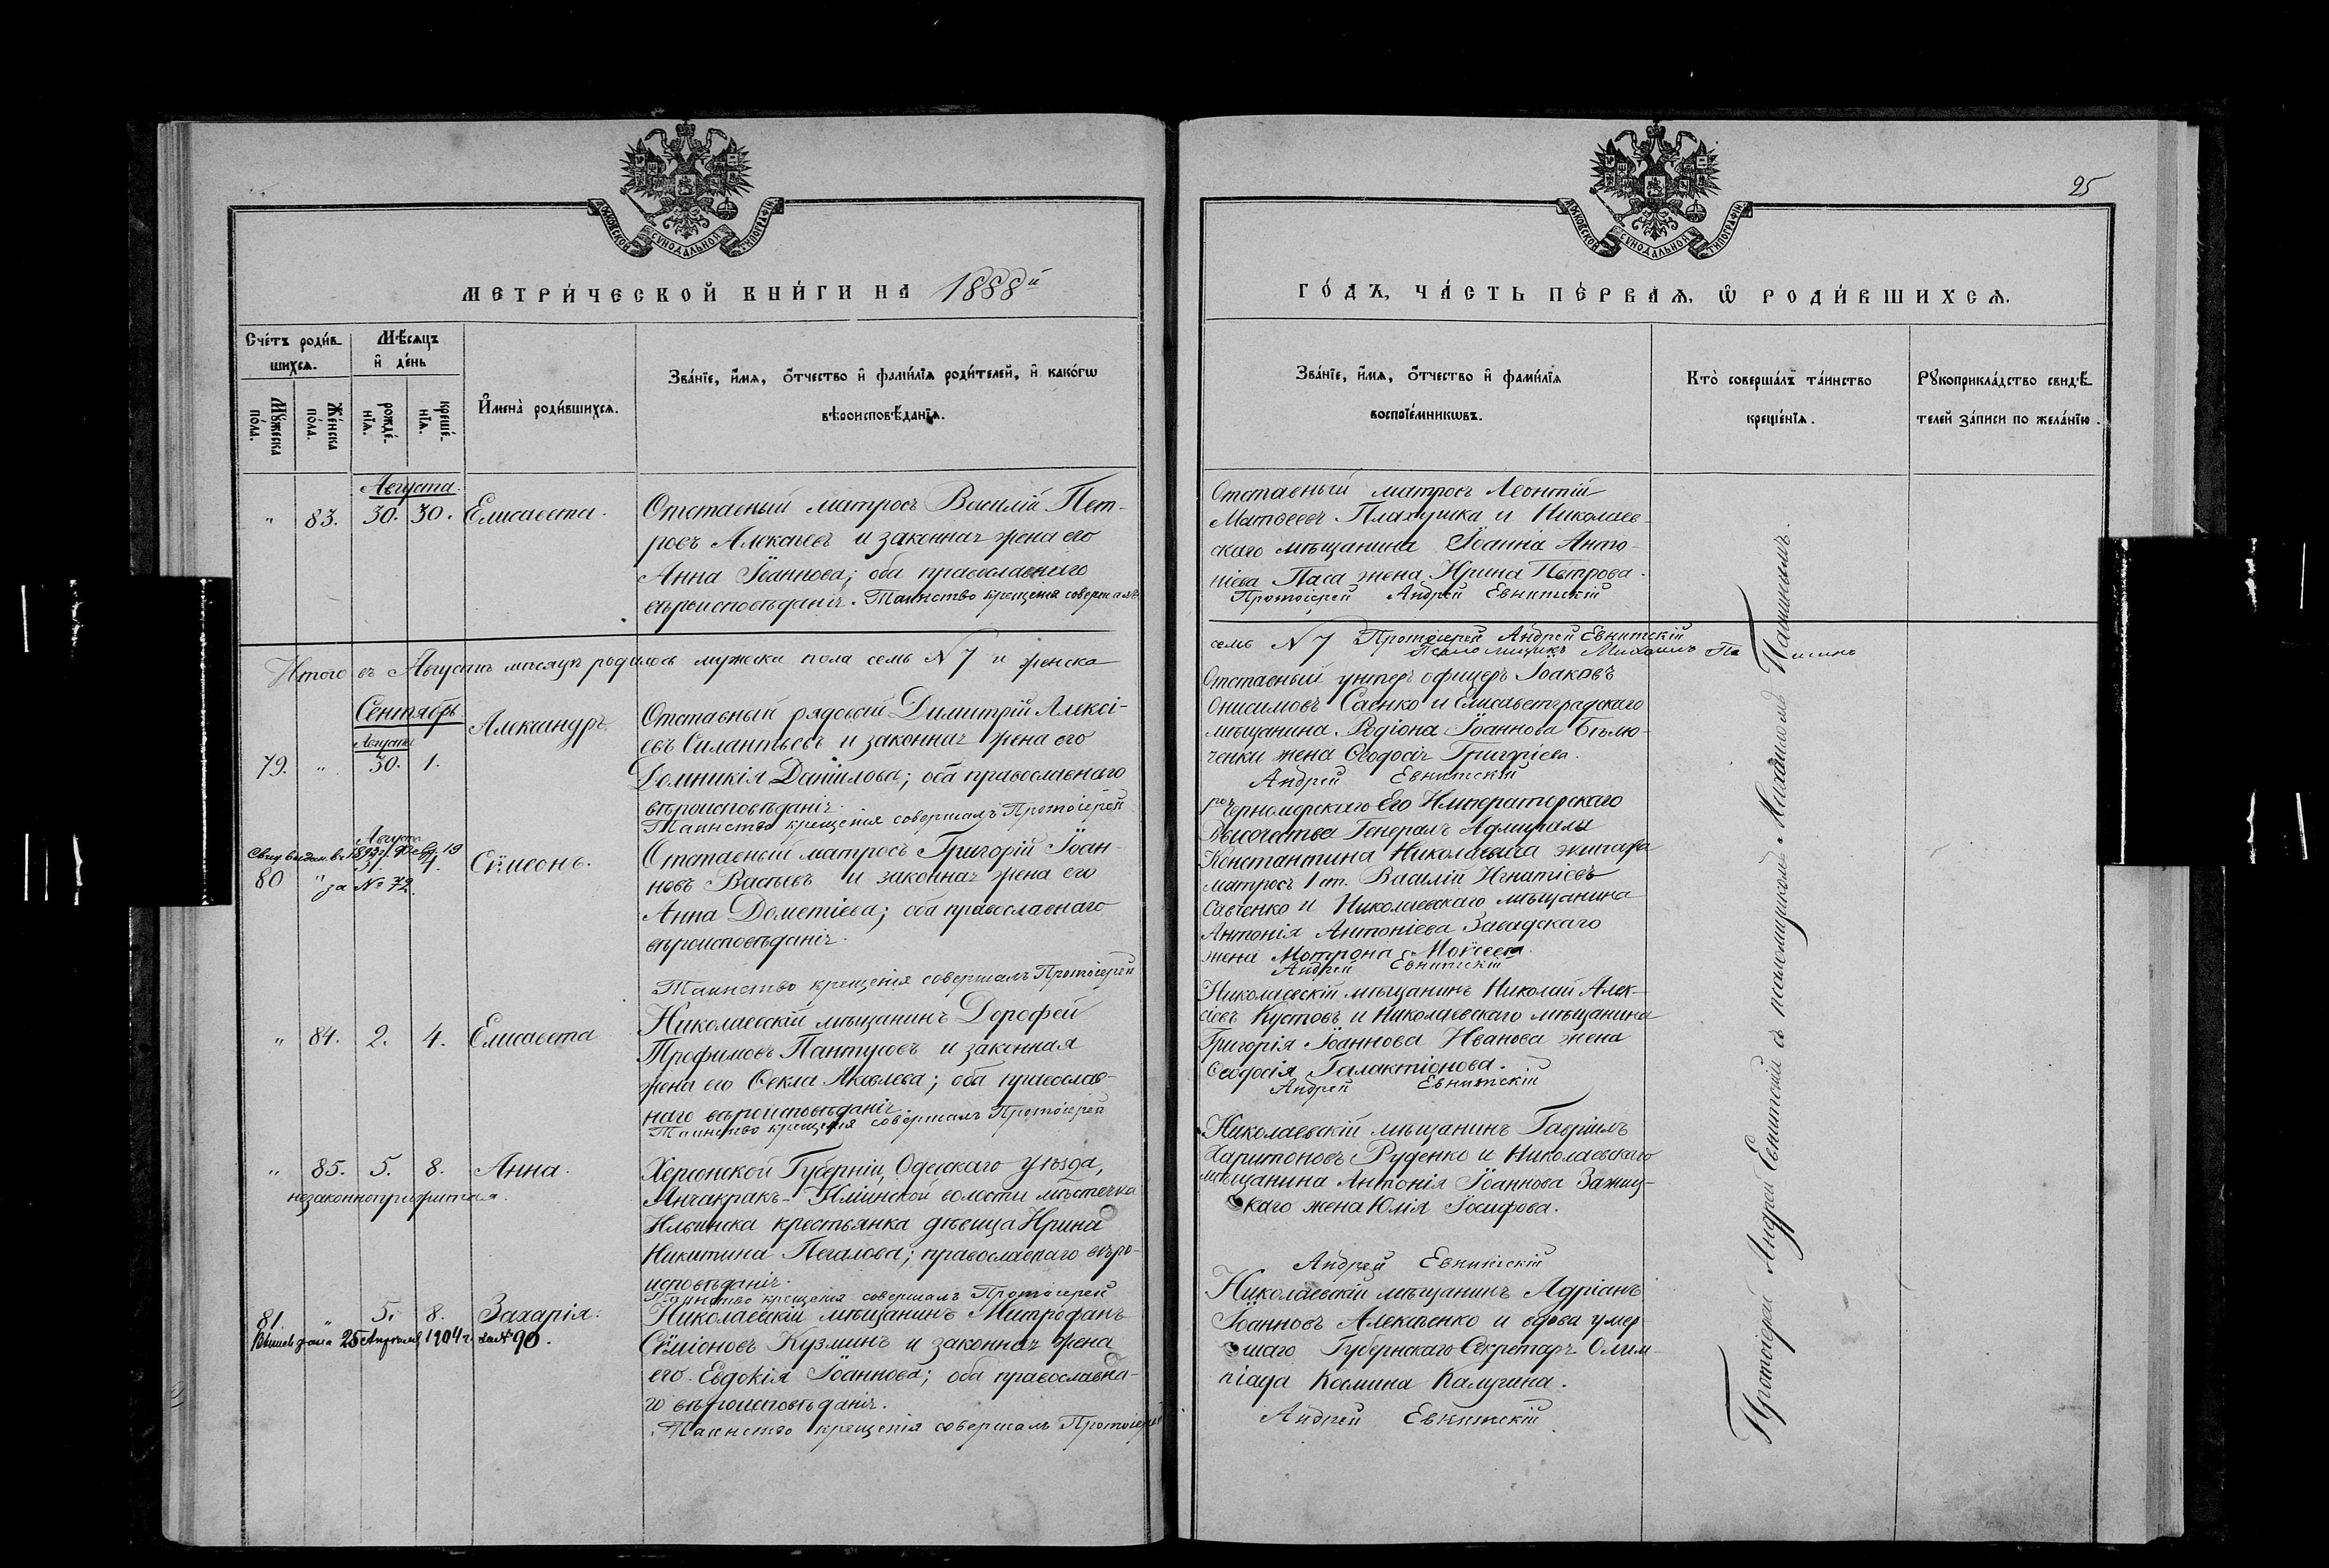 МОСКОВСКОЙ СѴНОДАЛЬНОЙ ТИПОГРАФІИ
МЕТРИ́ЧЕСКОЙ КНИ́ГИ НА 1888й
Сче́тъ роди́в-
шихсѧ.
Мѣ́сѧцъ
и҆ де́нь
Мꙋ́жеска
по́ла.
Же́нска
по́ла.
рожде́-
нїѧ.
креще́-
нїѧ.
И҆мена̀ роди́вшихсѧ.
Зва́нїе, и҆́мѧ, ѻ҆́тчество и҆ фами́лїѧ роди́телей, и҆ како́гѡ
вѣроисповѣ́данїѧ.
Августа
" 83. 30. 30. Елисавета.
Отставный матросъ Василій Пет-
ровъ Алексѣевъ и законная жена его
Анна Іоаннова; оба православнаго
вѣроисповѣданія. Таинство крещенія совершалъ
Итого въ Августѣ мѣсяцѣ родилось мужеска пола семь N 7 и женска
Сентябрь
Августа
79. " 30. 1. Александръ.
Отставный рядовой Димитрій Алексі-
евъ Силантьевъ и законная жена его
Домникія Даніилова; оба православнаго
вѣроисповѣданія.
Таинство крещенія совершалъ Протоіерей
Августа
80 " 31. 4. Сѷмеонъ.
за № 72.
Отставный матросъ Григорій Іоан
новъ Васьевъ и законная жена его
Анна Дометіева; оба православнаго
вѣроисповѣданія.
Таинство крещенія совершалъ Протоіерей
" 84. 2. 4. Елисавета
Николаевскій мѣщанинъ Дорофей
Трофимовъ Пантусовъ и законная
жена его Ѳекла Яковлева; оба православ-
наго вѣроисповѣданія
Таинство крещенія совершалъ Протоіерей
" 85. 5. 8. Анна.
незаконноприжитая.
Херсонской Губерніи, Одесскаго уѣзда,
Янчакракъ- Ильинской волости мѣстечка
Ильинска крестьянка дѣвица Ирина
Никитина Пегалова; православнаго вѣро-
исповѣданія.
Таинство крещенія совершалъ Протоіерей
81. " 5. 8. Захарія.
25 Апрѣля 1904 г. за № 90.
Николаевскій мѣщанинъ Митрофанъ
Сѷміоновъ Кузминъ и законная жена
его Евдокія Іоаннова; оба православна-
го вѣроисповѣданія.
Таинство крещенія совершалъ Протоіерей
25
МОСКОВСКОЙ СѴНОДАЛЬНОЙ ТИПОГРАФІИ
ГО́ДЪ, ЧА́СТЬ ПЕ́РВАѦ, Ѡ҆ РОДИ́ВШИХСѦ.
Зва́нїе, и҆́мѧ, ѻ҆́тчество и҆ фами́лїѧ
воспрїе́мникѡвъ.
Кто̀ соверша́лъ та́инство
креще́нїѧ.
Рꙋкоприкла́дство свидѣ́-
телей за́писи по жела́нїю.
Отставный матросъ Леонтій
Матѳеевъ Плахушка и Николаев-
скаго мѣщанина Іоанна Анто-
ніева Паса жена Ирина Петрова.
Протоіерей Андрей Евнитскій
семь N 7 Протоіерей Андрей Евнитскій
Псаломщикъ Михаилъ
Отставный унтеръ офицеръ Іаковъ
Онисимовъ Саенко и Елисаветградскаго
мѣщанина Родіона Іоаннова Бѣлю-
ченки жена Ѳеодосія Григоріева.
Андрей Евнитскій
Черноморскаго Его Императорскаго
Высочества Генералъ Адмирала
Константина Николаевича экипажа
матросъ 1 ст. Василій Игнатіевъ
Савченко и Николаевскаго мѣщанина
Антонія Антоніева Завадскаго
жена Мотрона Моѷсеева
Андрей Евнитскій
Николаевскій мѣщанинъ Николай Алек-
сіевъ Кустовъ и Николаевскаго мѣщанина
Григорія Іоаннова Иванова жена
Ѳеодосія Галактіонова.
Андрей Евнитскій
Николаевскій мѣщанинъ Гавріилъ
Харитоновъ Руденко и Николаевскаго
мѣщанина Антонія Іоаннова Зажиц-
каго жена Юлія Іосифова.
Андрей Евнитскій
Николаевскій мѣщанинъ Адріанъ
Іоанновъ Алексѣенко и вдова умер
шаго Губернскаго Секретаря Олим-
піада Космина Калугина.
Андрей Евнитскій
Протоіерей Андрей Евнитскій съ псаломщикомъ Михаиломъ